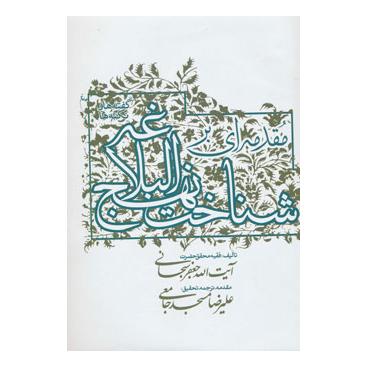 گفته‌ها و
نوشته‌ها
مقدمه‌ای بر
شناخت نهج البلاغه
تألیف: فقیه محقق حضرت
آیت الله جعفر سبحانی
مقدمه، ترجمه، تحقیق:
علیرضا مسجدجامعی